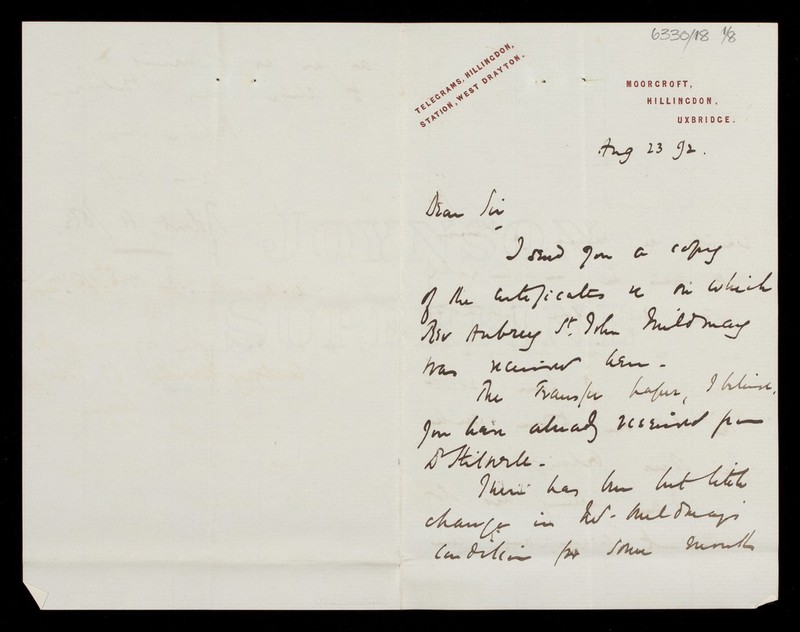 6330/18 1/8
TELEGRAMS, HILLINGDON,
STATION, WEST DRAYTON.
MOORCROFT,
HILLINGDON,
UXBRIDGE.
Aug 23 92.
Dear Sir
I send you a copy
of the certificates &c on which
Rev Aubrey St. John Mildmay
was received here.
The Transfer papers, I believe,
you have already received from
Dr Stilwell.
There has been but little
change in Mr. Mildmay's
condition for some months